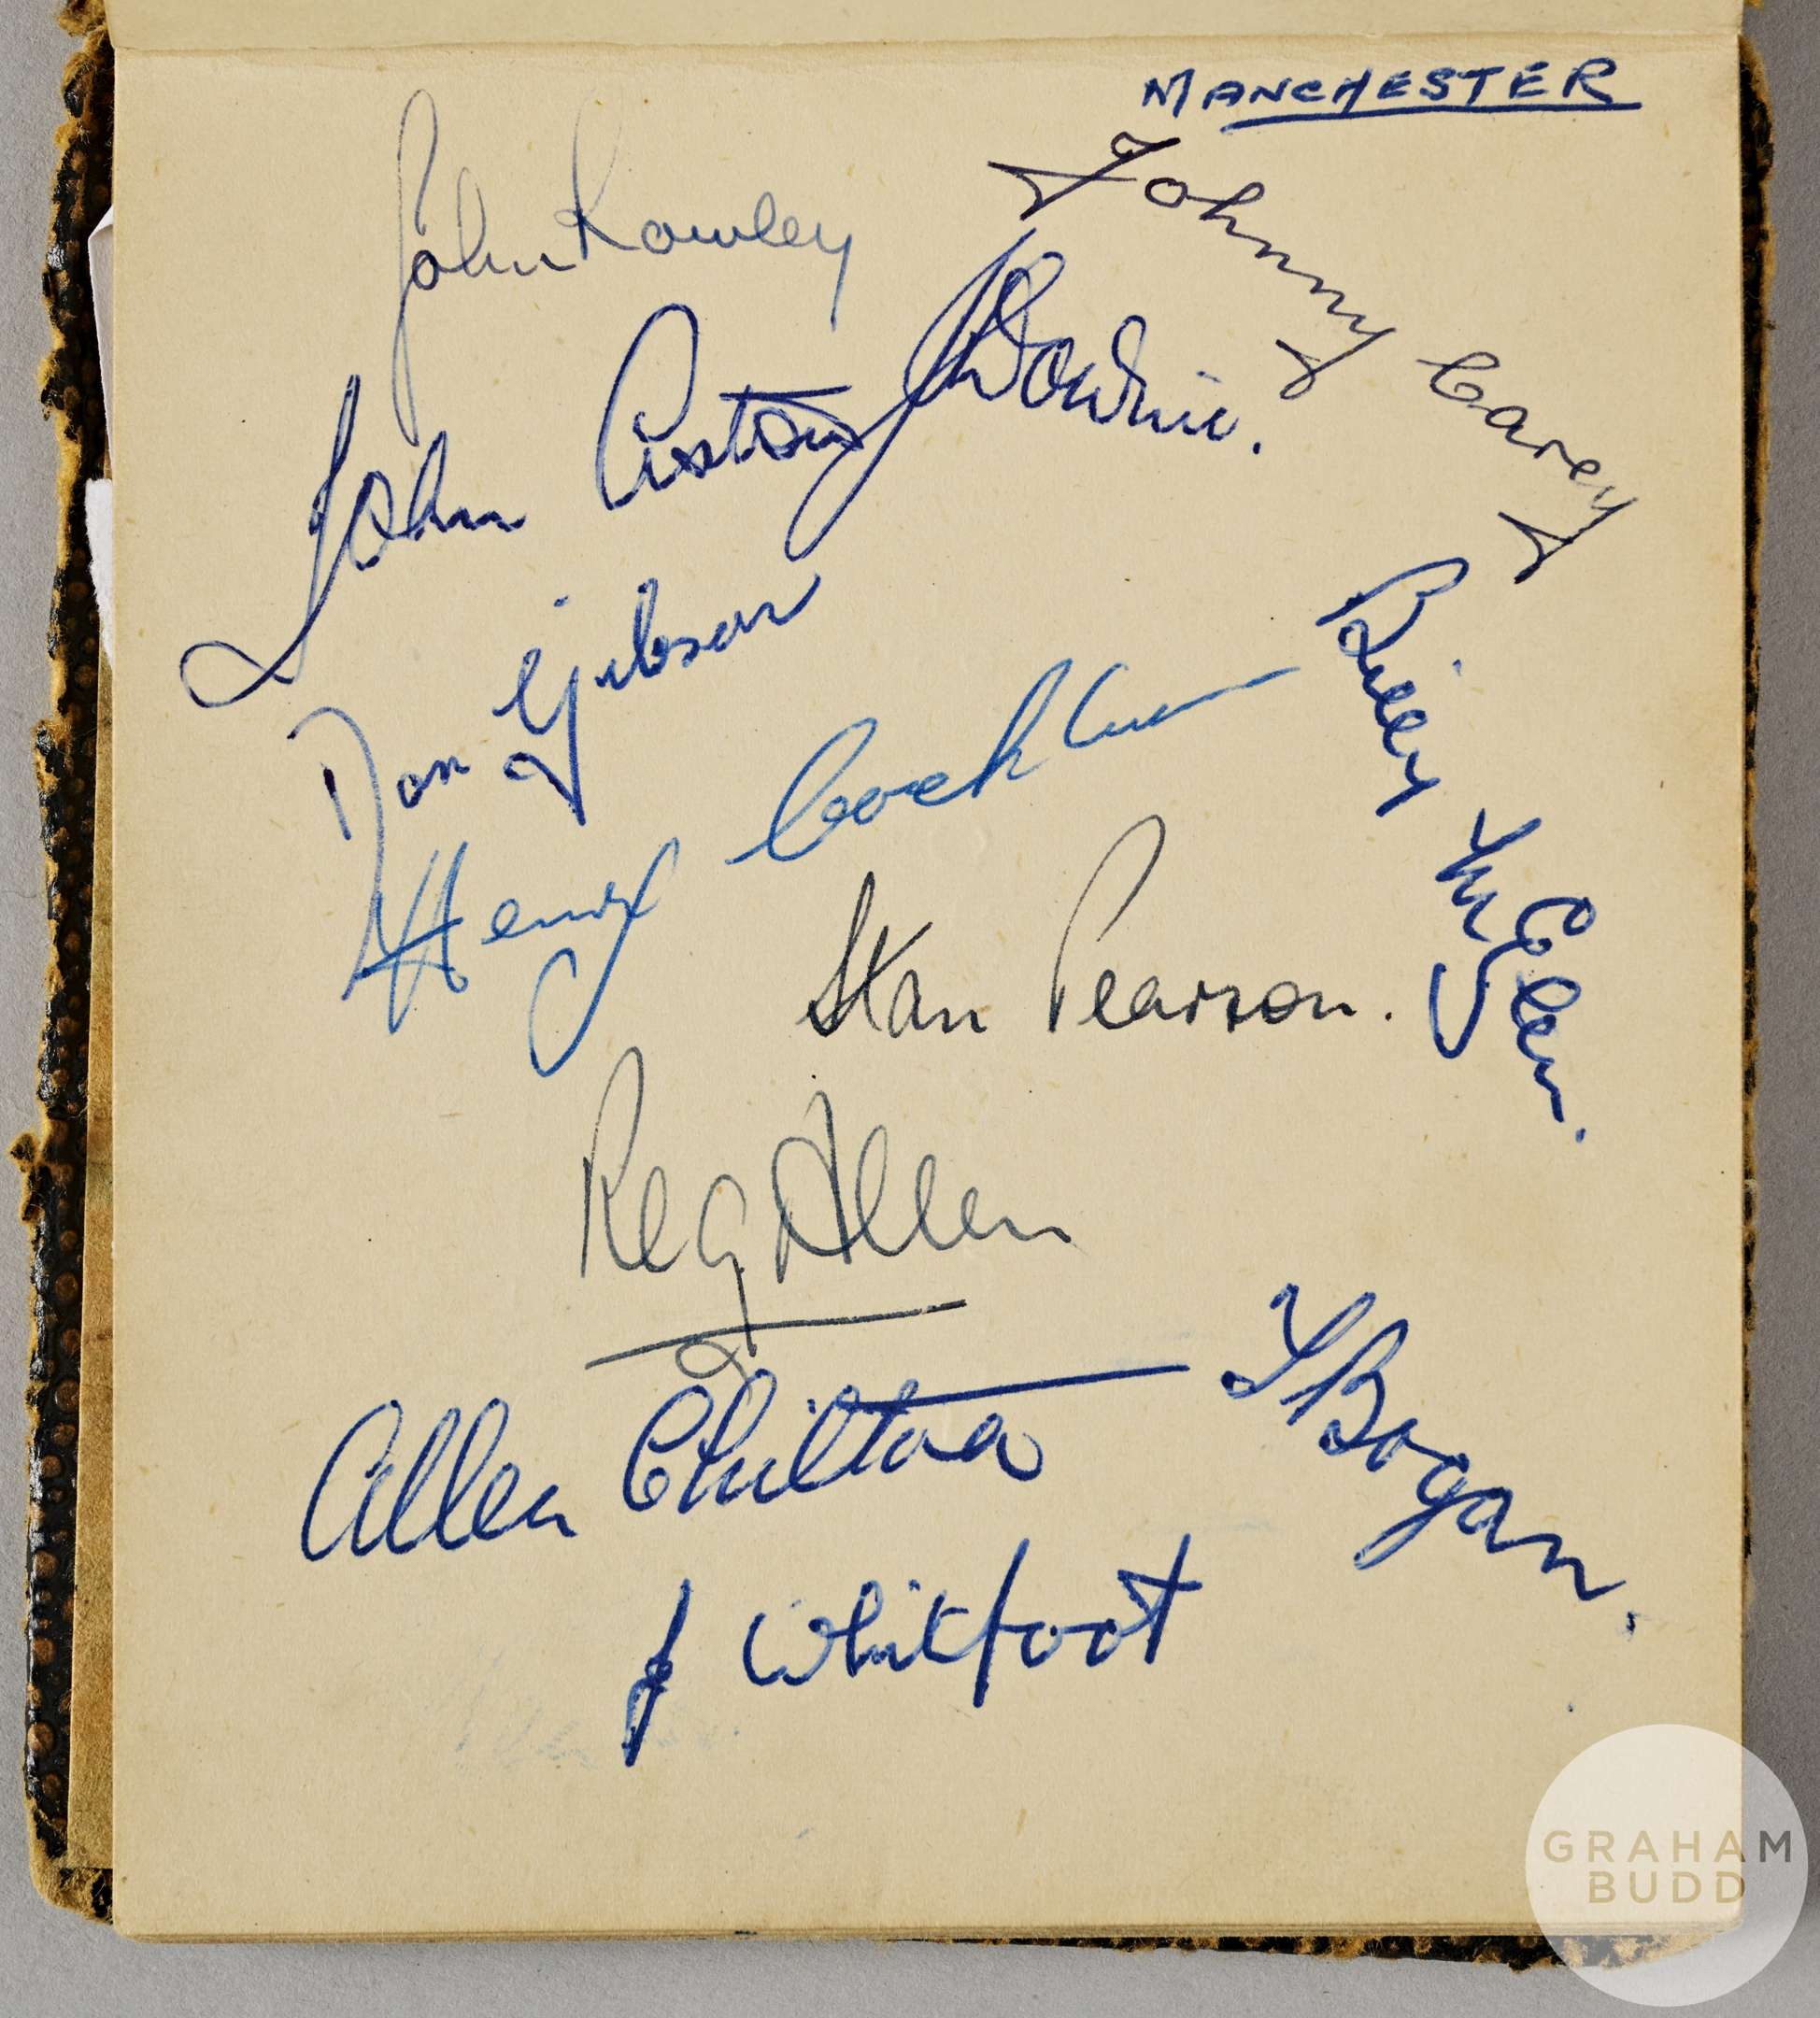 MANCHESTER
John Rowley
Johnny Carey
John Aston
J Downie.
Don Gibson
Henry Cockburn
Billy McGlen.
Stan Pearson.
Reg Allen
Allen Chilton
T Bogan.
J Whitefoot
GRAHAM
BUDD